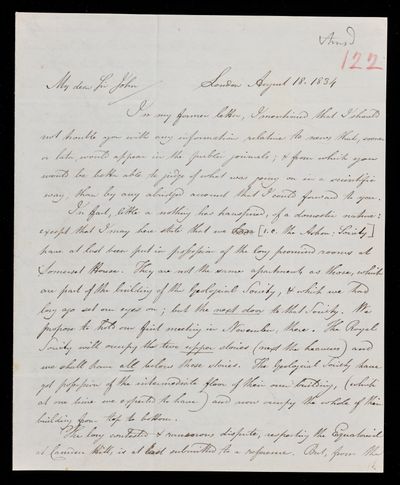 Ansd
122
My dear Sir John
London August 18. 1834
In my former letter, I mentioned that I should
not trouble you with any information relative to news that, sooner
or later, would appear in the public journals; & from which you
would be better able to judge of what was going on in a scientific
way, than by any abridged account that I could forward to you.
In fact, little or nothing has transpired, of a domestic nature:
except that I may here state that we [i.e. the Astron: Society]
have at last been put in possession of the long promised rooms at
Somerset House. They are not the same apartments as those, which
are part of the building of the Geological Society, & which we had
long ago set our eyes on; but the next door to that Society. We
propose to hold our first meeting in November, there. The Royal
Society will occupy the two upper stories (next the heavens) and
we shall have all below those stories. The Geological Society have
got possession of the intermediate floor of their own building, (which
at one time we expected to have) and now occupy the whole of their
building from top to bottom.
The long contested & rancorous dispute, respecting the Equatorial
at Camden Hill, is at last submitted to a reference. But, from the